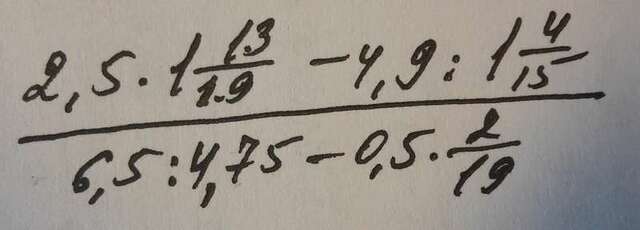 2,5 · 1 13/19 - 4,9 : 1 4/15
6,5 : 4,75 - 0,5 · 2/19